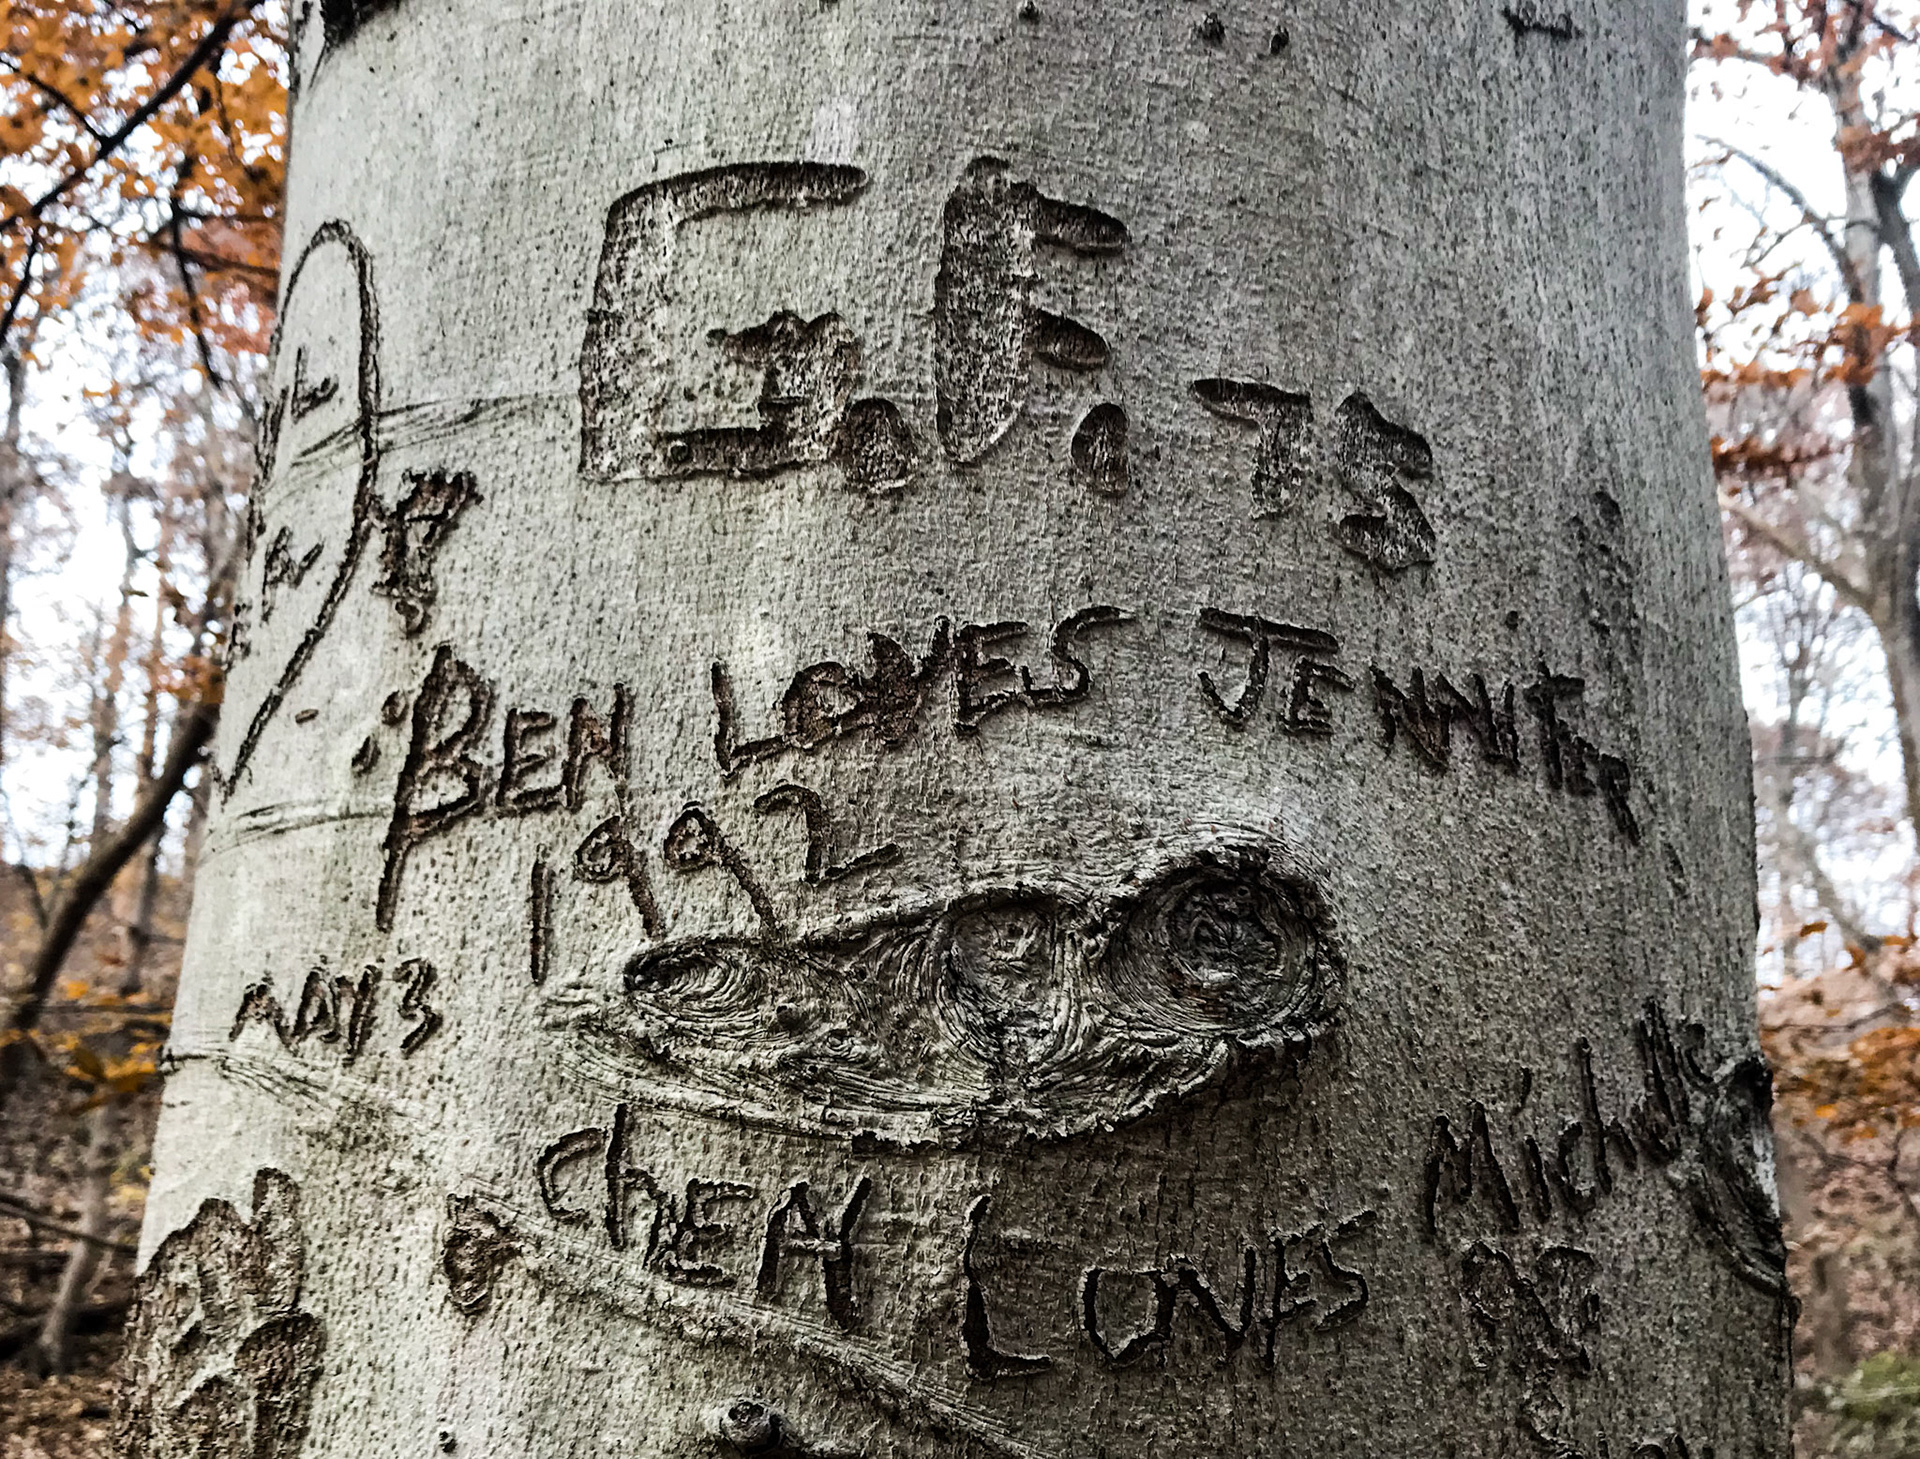 G.F. 75
BEN LOVES JENNIFER
1992
MAY 3
Chen LOVES Michelle